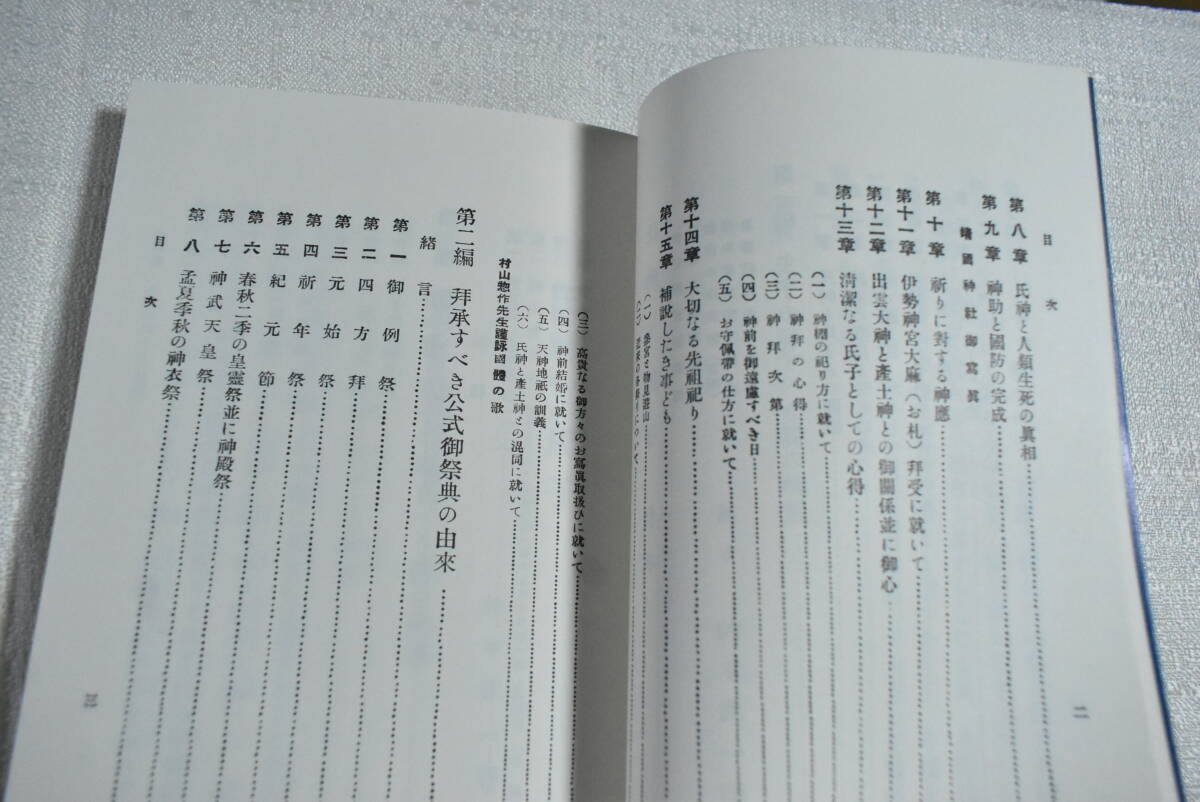 目次
第八章 氏神と人類生死の眞相
第九章 神助と國防の完成
靖國神社御寫眞
第十章 祈りに對する神應
第十一章 伊勢神宮大麻(お札)拜受に就いて
第十二章 出雲大神と產土神との御關係並に御心
第十三章 淸潔なる氏子としての心得
(一) 神棚の祀り方に就いて
(二) 神拜の心得
(三) 神拜次第
(四) 神前を御遠慮すべき日
(五) お守佩帶の仕方に就いて
第十四章 大切なる先祖祀り
第十五章 補說したき事ども
(一) 參宮と物見遊山
二
(三) 高貴なる御方々のお寫眞取扱ひに就いて
(四) 神前結婚に就いて
(五) 天神地祇の訓義
(六) 氏神と產土神との混同に就いて
村山惣作先生謹詠國體の歌
第二編 拜承すべき公式御祭典の由來
緒言
第一 御例祭
第二 四方拜
第三 元始祭
第四 祈年祭
第五 紀元節
第六 春秋二季の皇靈祭並に神殿祭
第七 神武天皇祭
第八 孟夏季秋の神衣祭
目次
三